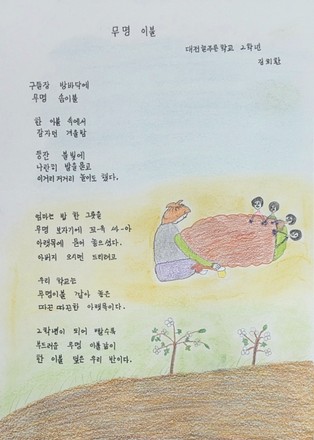 무명 이불
대전원주문학교 2학년
김희환
구들장 방바닥에
무명 솜이불
한 이불 속에서
잠자던 겨울밤
등잔 불빛에
나란히 발을 뻗고
이거리저거리 놀이도 했다.
엄마는 밥 한 그릇을
무명 보자기에 꼬옥 싸아
아랫목에 묻어 놓으셨다.
아버지 오시면 드리려고
우리 학교는
무명이불 깔아 놓은
따끈 따끈한 아랫목이다.
2학년이 되어 갈수록
부드러운 무명 이불같이
한 이불 덮은 우리 반이다.